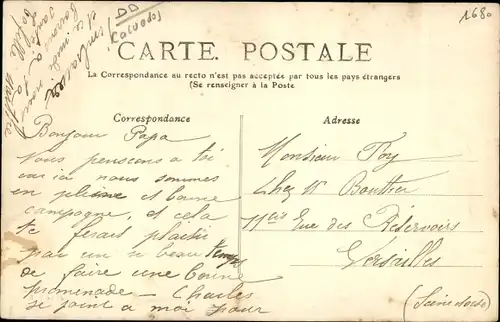 1680
DD
(Calvados)
CARTE POSTALE
La Correspondance au recto n'est pas acceptée par tous les pays étrangers
(Se renseigner à la Poste
Correspondance
Adresse
Bonjour Papa
Nous pensons a toi
car ici nous sommes
en pleine et bonne
campagne, et cela
te ferait plaisir
par un si beau temps
de faire une bonne
promenade — Charles
se joint a moi pour
t'embrasser
Ta fille Marthe
Monsieur Foy
Chez Mr Bouthier
11bis Rue des Réservoirs
Versailles
(Seine et Oise)